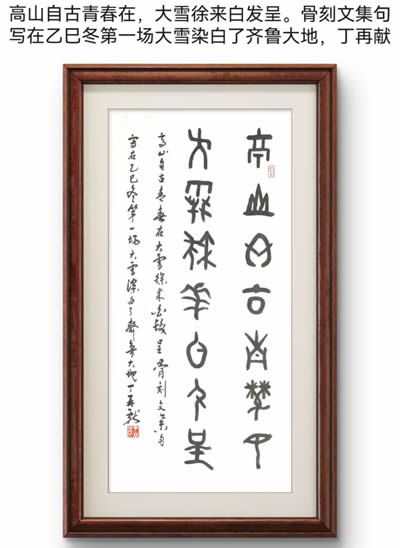 高山自古青春在，大雪徐来白发呈。骨刻文集句
写在乙巳冬第一场大雪染白了齐鲁大地，丁再献
高山自古青春在
大雪徐来白发呈
高山自古青春在大雪徐来白发呈骨刻文集句
写在乙巳冬第一场大雪染白了齐鲁大地丁再献